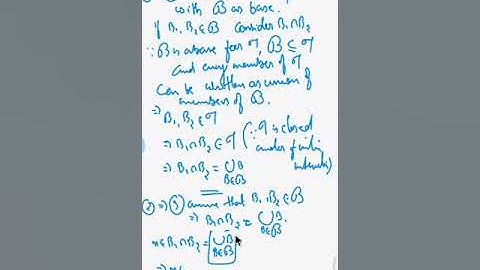 with ℬ as base.
if B₁, B₂ ∈ ℬ consider B₁ ∩ B₂
∵ ℬ is a base for 𝒯, ℬ ⊆ 𝒯
and any member of 𝒯
can be written as union of
members of ℬ.
⇒ B₁, B₂ ∈ 𝒯
⇒ B₁ ∩ B₂ ∈ 𝒯 (∵ 𝒯 is closed
under finite
⇒ B₁ ∩ B₂ = ∪ B
B∈ℬ
② ⇒ ③ assume that B₁, B₂ ∈ ℬ
⇒ B₁ ∩ B₂ = ∪ B.
B∈ℬ
x ∈ B₁ ∩ B₂ = ∪ B
B∈ℬ